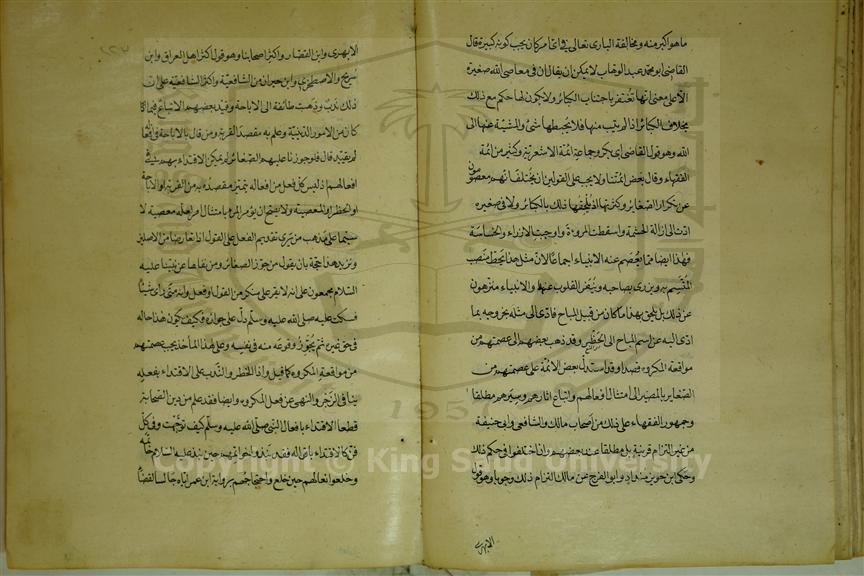 ما هو اكبر منه ومخالفة البارى تعالى فى اىّ امر كان يجب كونه كبيرة قال
القاضى ابو محمد عبد الوهاب لا يمكن ان يقال ان فى معاصى الله صغيرة
الّا على معنى انها تغتفر باجتناب الكبائر ولا يكون لها حكم مع ذلك
بخلاف الكبائر اذا لم يتب منها فلا يحبطها شئ والمشيئة فى العفو عنها الى
الله وهو قول القاضى ابى بكر وجماعة ائمة الاشعرية وكثير من ائمة
الفقهاء وقال بعض ائمتنا ولا يجب على القولين ان يختلف انهم معصومون
عن تكرار الصغائر وكثرتها اذ يلحقها ذلك بالكبائر ولا فى صغيرة
ادّت الى ازالة الحشمة واسقطت المروءة واوجبت الازراء والخساسة
فهذا ايضا مما يعصم عنه الانبياء اجماعا لان مثل هذا يحط منصب
المتّسم به ويزرى بصاحبه وينفر القلوب عنه والانبياء منزهون
عن ذلك بل يلحق بهذا ما كان من قبيل المباح فادّى الى مثله بخروجه بما
ادّى اليه عن اسم المباح الى الحظر وقد ذهب بعضهم الى عصمتهم من
مواقعة المكروه قصدا وقد استدلّ بعض الائمة على عصمتهم من
الصغاير بالمصير الى امتثال افعالهم واتباع اثارهم وسيرهم مطلقا
وجمهور الفقهاء على ذلك من اصحاب مالك والشافعى وابى حنيفة
من غير التزام قرينة بل مطلقا عند بعضهم وان اختلفوا فى حكم ذلك
وحكى ابن خويز منداد وابو الفرج عن مالك التزام ذلك وجوبا وهو قول
الابهرى
الابهرى وابن القصار واكثر اصحابنا وهو قول اكثر اهل العراق وابن
سريج والاصطخرى وابن خيران من الشافعية واكثر الشافعية على ان
ذلك ندب وذهبت طائفة الى الاباحة وقيد بعضهم الاتباع فيما
كان من الامور الدينية وعلم به مقصد القربة ومن قال بالاباحة فى افعاله
لم يقيّد قال فلو جوزنا عليهم الصغائر لم يمكن الاقتداء بهم فى
افعالهم اذ ليس كل فعل من افعاله يتميز مقصده به من القربة او الاباحة
او الحظر او المعصية ولا يصح ان يؤمر المرء بامتثال امر لعله معصية لا
سيّما على مذهب من يرى تقديم الفعل على القول اذا تعارضا من الاصليين
ونزيد هذا حجة بان يقول من جوّز الصغائر ومن نفاها عن نبيّنا عليه
السلام مجمعون على انه لا يقر على منكر من القول او فعل وانه متى رأى شيئا
فسكت عليه صلى الله عليه وسلّم دلّ على جوازه فكيف يكون هذا حاله
فى حق غيره ثم يجوّز وقوعه منه فى نفسه وعلى هذا المأخذ يجب عصمتهم
من مواقعة المكروه كما قيل واذا الحظر او الندب على الاقتداء بفعله
ينافى الزجر والنهى عن فعل المكروه وايضا فقد علم من دين الصحابة
قطعا الاقتداء بافعال النبى صلى الله عليه وسلّم كيف توجّهت وفى كلّ
فنّ كالاقتداء باقواله فقد نبذوا خواتمهم حين نبذ عليه السلام خاتمه
وخلعوا نعالهم حين خلع واحتجاجهم برواية ابن عمر اياه جالسا لقضاء
1957
Copyright © King Saud University